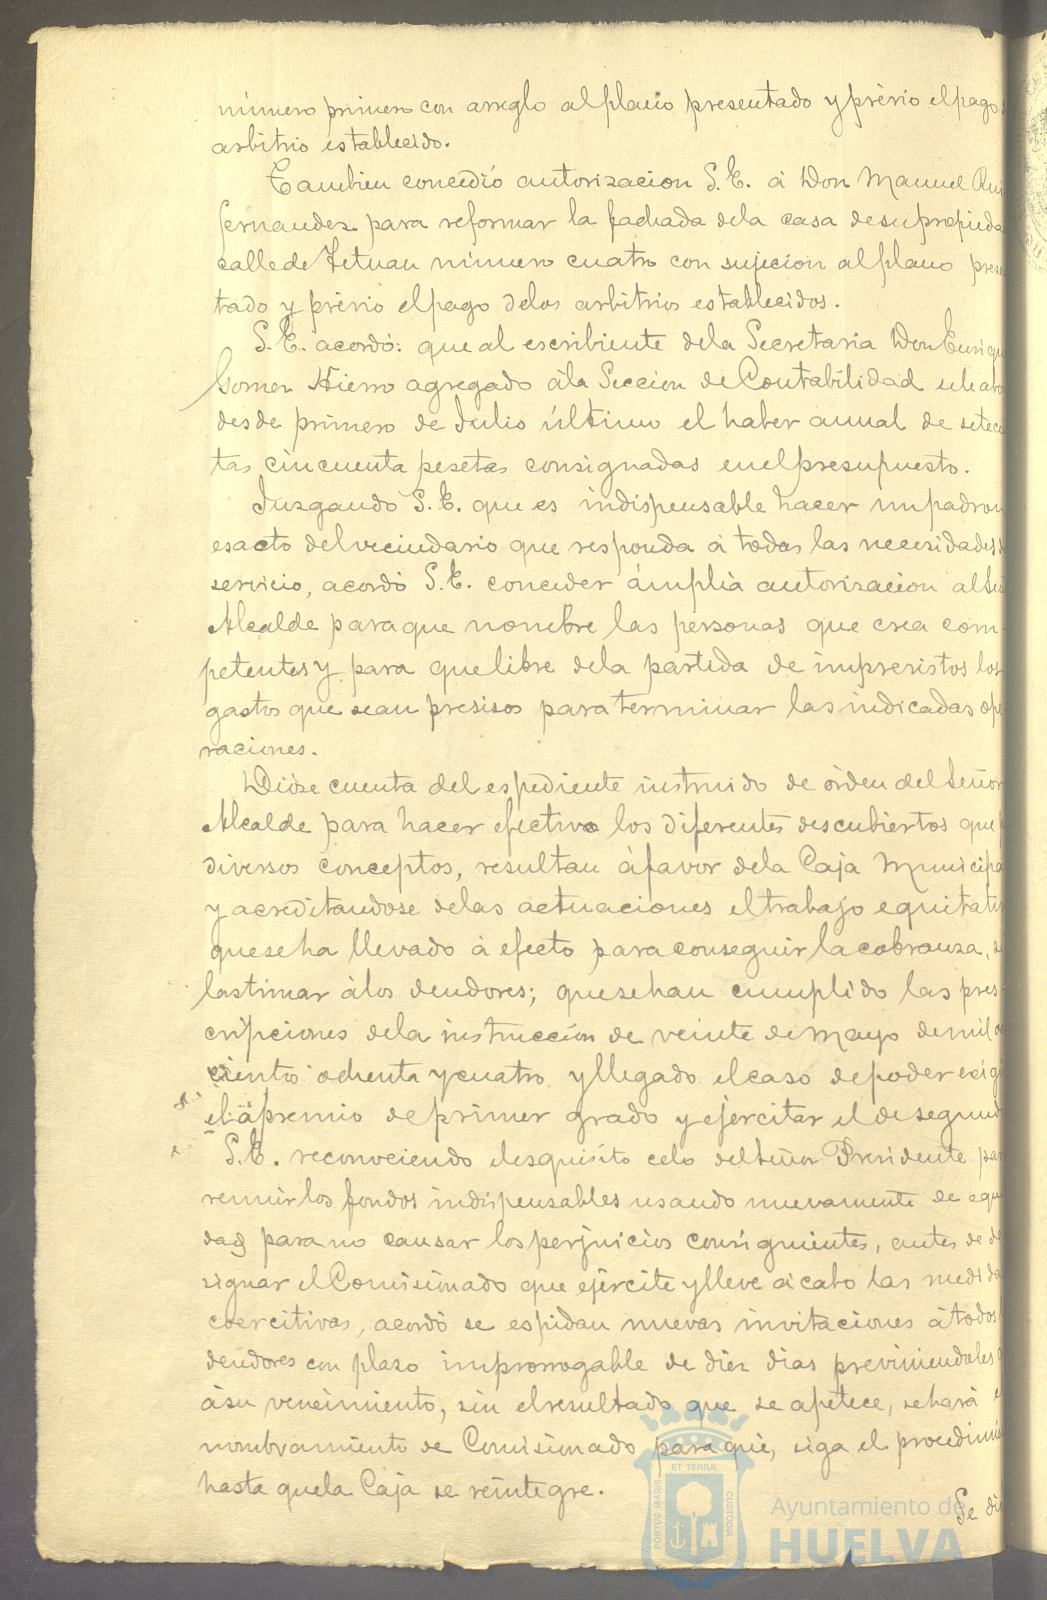 número primero con arreglo al plano presentado y prévio el pago
arbitrio establecido.
Tambien concedió autorizacion S.E. á Don Manuel Rui
Fernandez para reformar la fachada dela casa desu propieda
calle de Tetuan número cuatro con sujecion al plano presen
tado y prévio el pago delos arbitrios establecidos.
S.E. acordó: que al escribiente dela Secretaria Don Enrique
Gomez Hierro agregado ála Seccion de Contabilidad sele abo
desde primero de Julio último el haber anual de setecien
tas cincuenta pesetas consignadas enel presupuesto.
Juzgando S.E. que es indispensable hacer un padron
esacto del vecindario que responda á todas las necesidades
servicio, acordó S.E. conceder ámplia autorizacion al Señ
Alcalde para que nombre las personas que crea com-
petentes y para que libre dela partida de imprevistos los
gastos que sean presisos para terminar las indicadas ope
raciones.
Dióse cuenta del espediente instruido de órden del Señor
Alcalde para hacer efectivo los diferentes descubiertos que p
diversos conceptos, resultan á favor dela Caja Municipa
y acreditandose delas actuaciones el trabajo equitativ
quese ha llevado á efecto para conseguir la cobranza, s
lastimar álos deudores; quese han cumplido las pres-
cripciones dela instruccion de veinte de Mayo de mil o
cientos ochenta y cuatro y llegado el caso de poder exigi
el apremio de primer grado y ejercitar el de segund
S.E. reconociendo el esquisito celo del Señor Presidente par
reunir los fondos indispensables usando nuevamente de equi
dad para no causar los perjuicios consiguientes, antes de de
signar el Comisionado que ejercite y lleve á cabo las medida
coercitivas, acordó se espidan nuevas invitaciones á todos
deudores con plazo improrrogable de diez dias previniendoles q
ásu vencimiento, sin el resultado que se apetece, se hará e
nombramiento de Comisionado para que, siga el procedimie
hasta quela Caja se reintegre.
Se dió
PORTUS MARIS
ET TERRÆ
CUSTODIA
Ayuntamiento de
HUELVA